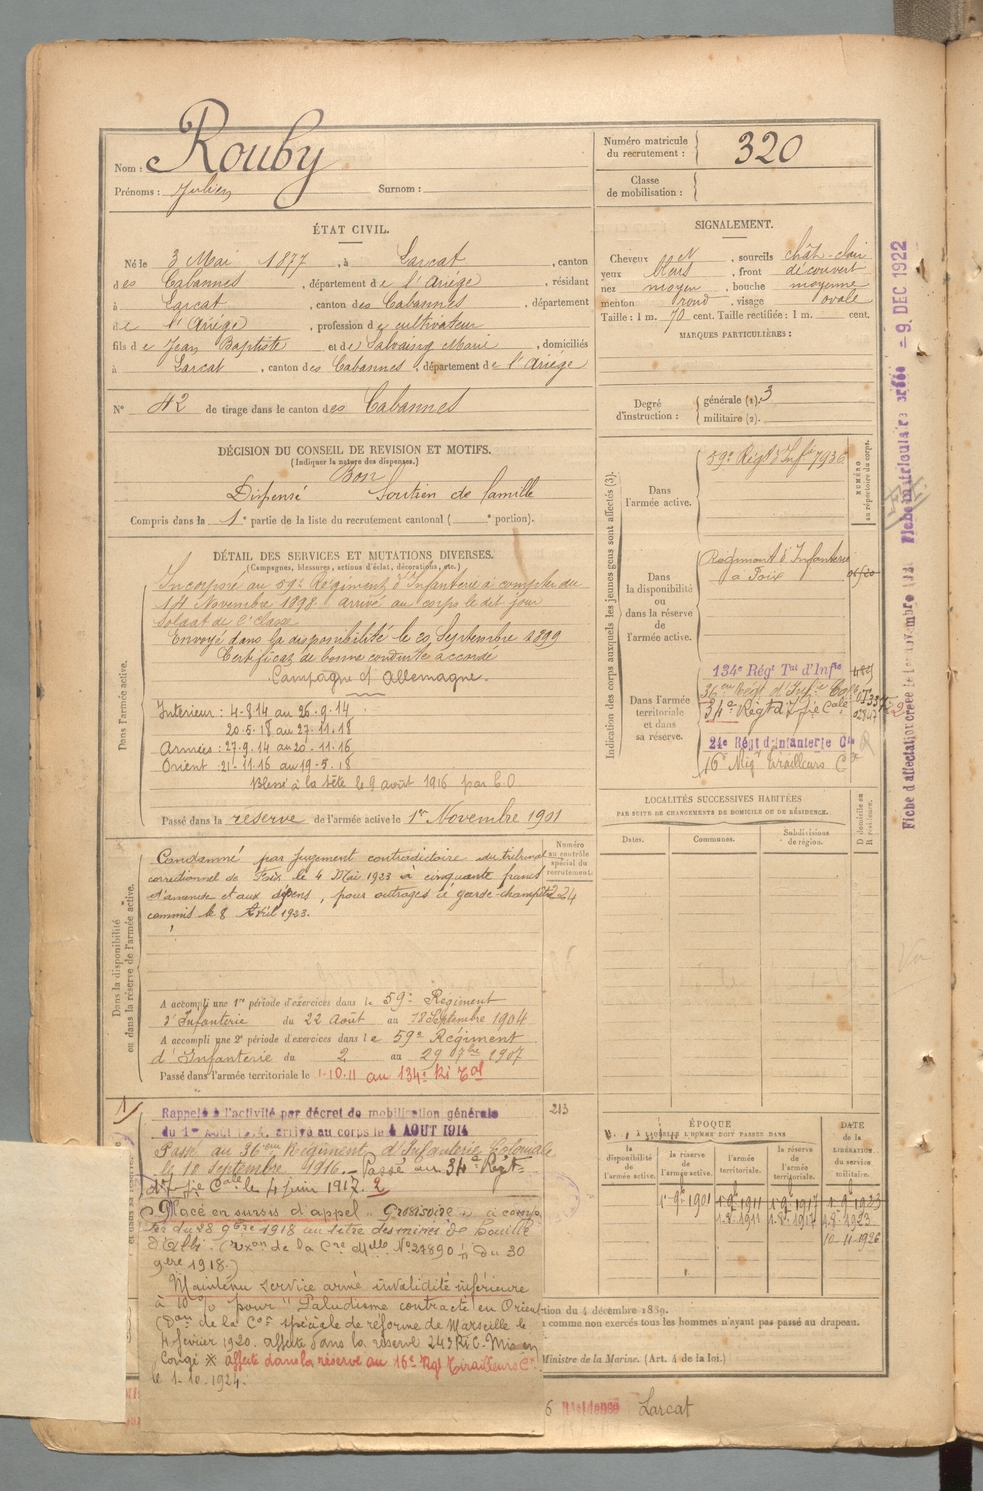 Nom : Rouby
Prénoms : Julien Surnom :
Numéro matricule du recrutement : 320
Classe de mobilisation :
ÉTAT CIVIL.
Né le 3 Mai 1877, à Larcat, canton
des Cabannes, département de l'Ariége, résidant
à Larcat, canton des Cabannes, département
de l'Ariége, profession de cultivateur
fils de Jean Baptiste et de Salvaing Marie, domiciliés
à Larcat, canton des Cabannes, département de l'Ariége
N° 42 de tirage dans le canton des Cabannes
SIGNALEMENT.
Cheveux N, sourcils chât-clair
yeux bleus, front découvert
nez moyen, bouche moyenne
menton rond, visage ovale
Taille : 1 m. 70 cent. Taille rectifiée : 1 m. cent.
MARQUES PARTICULIÈRES :
Degré d'instruction : générale (1). 3
militaire (2).
DÉCISION DU CONSEIL DE REVISION ET MOTIFS.
(Indiquer la nature des dispenses.)
Bon
Dispensé Soutien de famille
Compris dans la 1e partie de la liste du recrutement cantonal ( e portion).
DÉTAIL DES SERVICES ET MUTATIONS DIVERSES.
(Campagnes, blessures, actions d'éclat, décorations, etc.)
Dans l'armée active.
Incorporé au 59e Régiment d'Infanterie à compter du
14 Novembre 1898. arrivé au corps le dit jour
soldat de 2e classe
Envoyé dans la disponibilité le 20 Septembre 1899
Certificat de bonne conduite accordé
Campagne d'Allemagne.
Intérieur : 4-8 14 au 26.9.14
20.5.18 au 27.11.18
Armées : 27.9.14 au 20.11.16
Orient 21-11-16 au 19-5.18
Blessé à la tête le 9 août 1916 par E.O
Passé dans la réserve de l'armée active le 1er Novembre 1901
Indication des corps auxquels les jeunes gens sont affectés (3).
NUMÉRO au répertoire du corps.
Dans l'armée active.
59e Régt d'Infie 7936
Dans la disponibilité ou dans la réserve de l'armée active.
Régiment d'Infanterie
à Foix
Dans l'armée territoriale et dans sa réserve.
134e Régt Tal d'Infie
36eme Régt d'Infie Cole
34e Régt d'Infie Cale
24e Régt d'Infanterie Cle
16e Régt Tirailleurs Cx
LOCALITÉS SUCCESSIVES HABITÉES
PAR SUITE DE CHANGEMENTS DE DOMICILE OU DE RÉSIDENCE.
Dates. Communes. Subdivisions de région. D domicile ou R résidence.
Dans la disponibilité ou dans la réserve de l'armée active.
Numéro au contrôle spécial du recrutement.
Condamné par jugement contradictoire du tribunal
correctionnel de Foix le 4 Mai 1923 à cinquante francs
d'amende et aux dépens, pour outrages à garde-champêtre
commis le 8 Avril 1923.
224
A accompli une 1re période d'exercices dans le 59e Régiment
d'Infanterie du 22 Août au 18 Septembre 1904
A accompli une 2e période d'exercices dans le 59e Régiment
d'Infanterie du 2 au 29 7bre 1907
Passé dans l'armée territoriale le 1-10.11 au 134e RI Tal
213
Rappelé à l'activité par décret de mobilisation générale
du 1er Août 1914. arrivé au corps le 4 AOUT 1914
Passé au 36eme Régiment d'Infanterie Coloniale
le 18 septembre 1916. - Passé au 34e Régt
d'Infie Cale le 4 juin 1917. 2
Placé en sursis d'appel
du 28 9bre 1918 au titre des mines de houille
d'Albi.
9bre 1918.)
Maintenu service armé invalidité inférieure
à 10 % pour "Paludisme contracté en Orient
(Don de la Con spéciale de réforme de Marseille le
4 février 1920. affecté dans la réserve 24e RIC. Mis en
congé affecté dans la réserve au 16e Rgt Tirailleurs Cx
le 1-10.1924.
ÉPOQUE
À LAQUELLE L'HOMME DOIT PASSER DANS
la disponibilité de l'armée active. la réserve de l'armée active. l'armée territoriale. la réserve de l'armée territoriale.
DATE de la LIBÉRATION du service militaire.
1-9bre 1901 1-9-1911 1-9-1917 1-9-1923
1.8.1911 1.8.1917 1.8-1923
10-11-1926
tion du 4 décembre 1889.
comme non exercés tous les hommes n'ayant pas passé au drapeau.
Ministre de la Marine. (Art. 4 de la loi.)
6 Résidence Larcat
- 9. DEC 1922